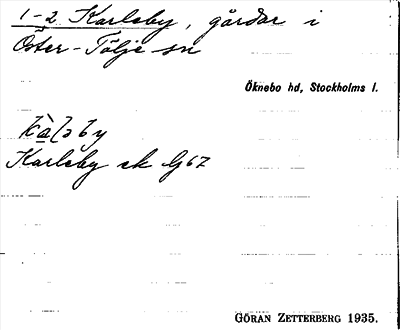 1-2 Karleby, gårdar i
Öster-Tälje sn
Öknebo hd, Stockholms l.
Karleby ek G67
GÖRAN ZETTERBERG 1935.